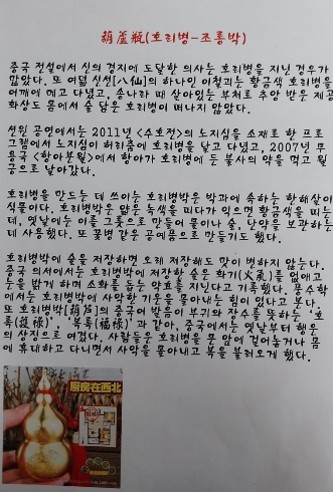 葫蘆瓶(호리병-조롱박)
중국 전설에서 신의 경지에 도달한 의사는 호리병을 지닌 경우가
많았다. 또 여덟 신선[八仙]의 하나인 이철괴는 황금색 호리병을
어깨에 메고 다녔고, 송나라 때 살아있는 부처로 추앙 받은 제공
화상도 몸에서 술 담은 호리병이 떠나지 않았다.
선원 공연에서는 2011년 <수호전>의 노지심을 소재로 한 프로
그램에서 노지심이 허리춤에 호리병을 달고 다녔고, 2007년 무
용극 <항아분월>에서 항아가 호리병에 든 불사의 약을 먹고 월
궁으로 날아갔다.
호리병을 만드는 데 쓰이는 호리병박은 박과에 속하는 한해살이
식물이다. 호리병박은 엷은 녹색을 띠다가 익으면 황금색을 띠는
데, 옛날에는 이를 그릇으로 만들어 물이나 술, 낟약을 보관하는
데 사용했다. 또 꽃병 같은 공예품으로 만들기도 했다.
호리병박에 술을 저장하면 오래 저장해도 맛이 변하지 않는다.
중국 의서에서는 호리병박에 저장한 술은 화기(火氣)를 없애고
눈을 밝게 하며 소화를 돕는 약효를 지닌다고 기록했다. 풍수학
에서는 호리병박에 사악한 기운을 몰아내는 힘이 있다고 본다.
또 호리병박[葫蘆]의 중국어 발음이 부귀와 장수를 뜻하는 '호
록(護祿)', '복록(福祿)'과 같아, 중국에서는 옛날부터 행운
의 상징으로 여겼다. 사람들은 호리병을 문 앞에 걸어놓거나 몸
에 휴대하고 다니면서 사악을 몰아내고 복을 불러오게 했다.
厨房在西北